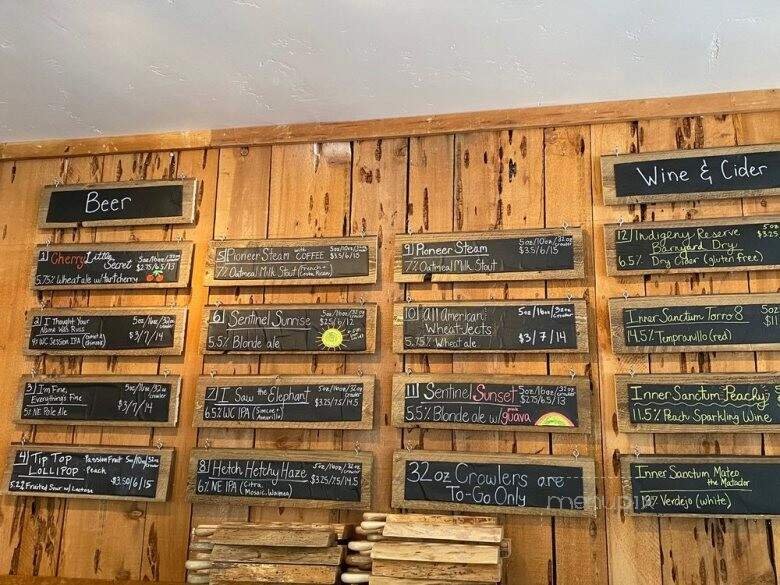 Beer
1) Cherry Little Secret 5oz/10oz/32oz crowler
$2.75/6.5/13
5.75% Wheat ale w/ tart cherry
2) I Thought Your Name Was Russ 5oz/16oz/32oz crowler
$3/7/14
WC Session IPA
3) I'm Fine, Everything's Fine 5oz/16oz/32oz crowler
$3/7/14
5% NE Pale Ale
4) Tip Top Lollipop Passion Fruit Peach 5oz/10oz/32oz crowler
$3.50/6/15
5.2% Fruited Sour w/ Lactose
5) Pioneer Steam with COFFEE 5oz/10oz/32oz crowler
$3.5/6/15
7% Oatmeal Milk Stout
6) Sentinel Sunrise 5oz/16oz/32oz crowler
$2.5/6/12
5.5% Blonde ale
7) I Saw the Elephant 5oz/16oz/32oz crowler
$3.25/7.5/14.5
6.5% WC IPA (Simcoe + Amarillo)
8) Hetch Hetchy Haze 5oz/16oz/32oz crowler
$3.25/7.5/14.5
6% NE IPA (Citra, Mosaic, Waimea)
9) Pioneer Steam 5oz/10oz/32oz crowler
$3.5/6/15
7% Oatmeal Milk Stout
10) All American Wheat-Jects 5oz/16oz/32oz crowler
$3/7/14
5.75% Wheat ale
11) Sentinel Sunset 5oz/16oz/32oz crowler
$2.75/6.5/13
5.5% Blonde ale w/ pink guava
32 oz Crowlers are
To-Go Only
Wine & Cider
12 Indigeny Reserve 5oz
Barnyard Dry $3.25
6.5% Dry Cider (gluten free)
Inner Sanctum Torro 8 5oz
14.5% Tempranillo (red)
Inner Sanctum Peachy
11.5% Peach Sparkling Wine
Inner Sanctum Mateo
the Matador
13% Verdejo (white)
menupix